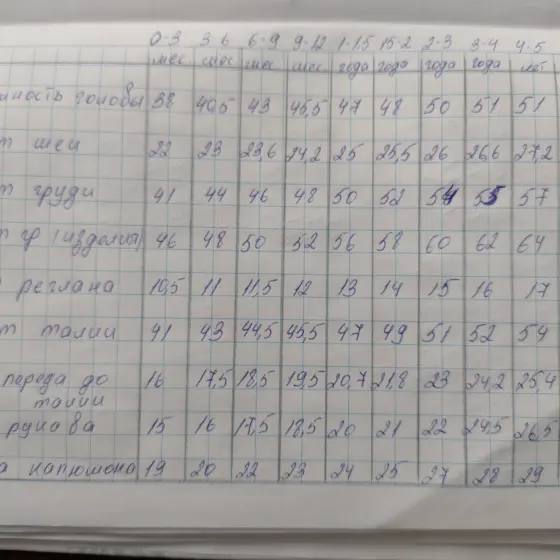 0-3 3-6 6-9 9-12 1-1,5 1,5-2 2-3 3-4 4-5
мес мес мес мес года года года года лет
мность головы 38 40,5 43 45,5 47 48 50 51 51
т шеи 22 23 23,6 24,2 25 25,5 26 26,6 27,2
т груди 41 44 46 48 50 52 54 55 57
т гр (изделия) 46 48 50 52 56 58 60 62 64
реглана 10,5 11 11,5 12 13 14 15 16 17
т талии 41 43 44,5 45,5 47 49 51 52 54
переда до 16 17,5 18,5 19,5 20,7 21,8 23 24,2 25,4
талии
рукава 15 16 17,5 18,5 20 21 22 24,5 26,5
а капюшона 19 20 22 23 24 25 27 28 29